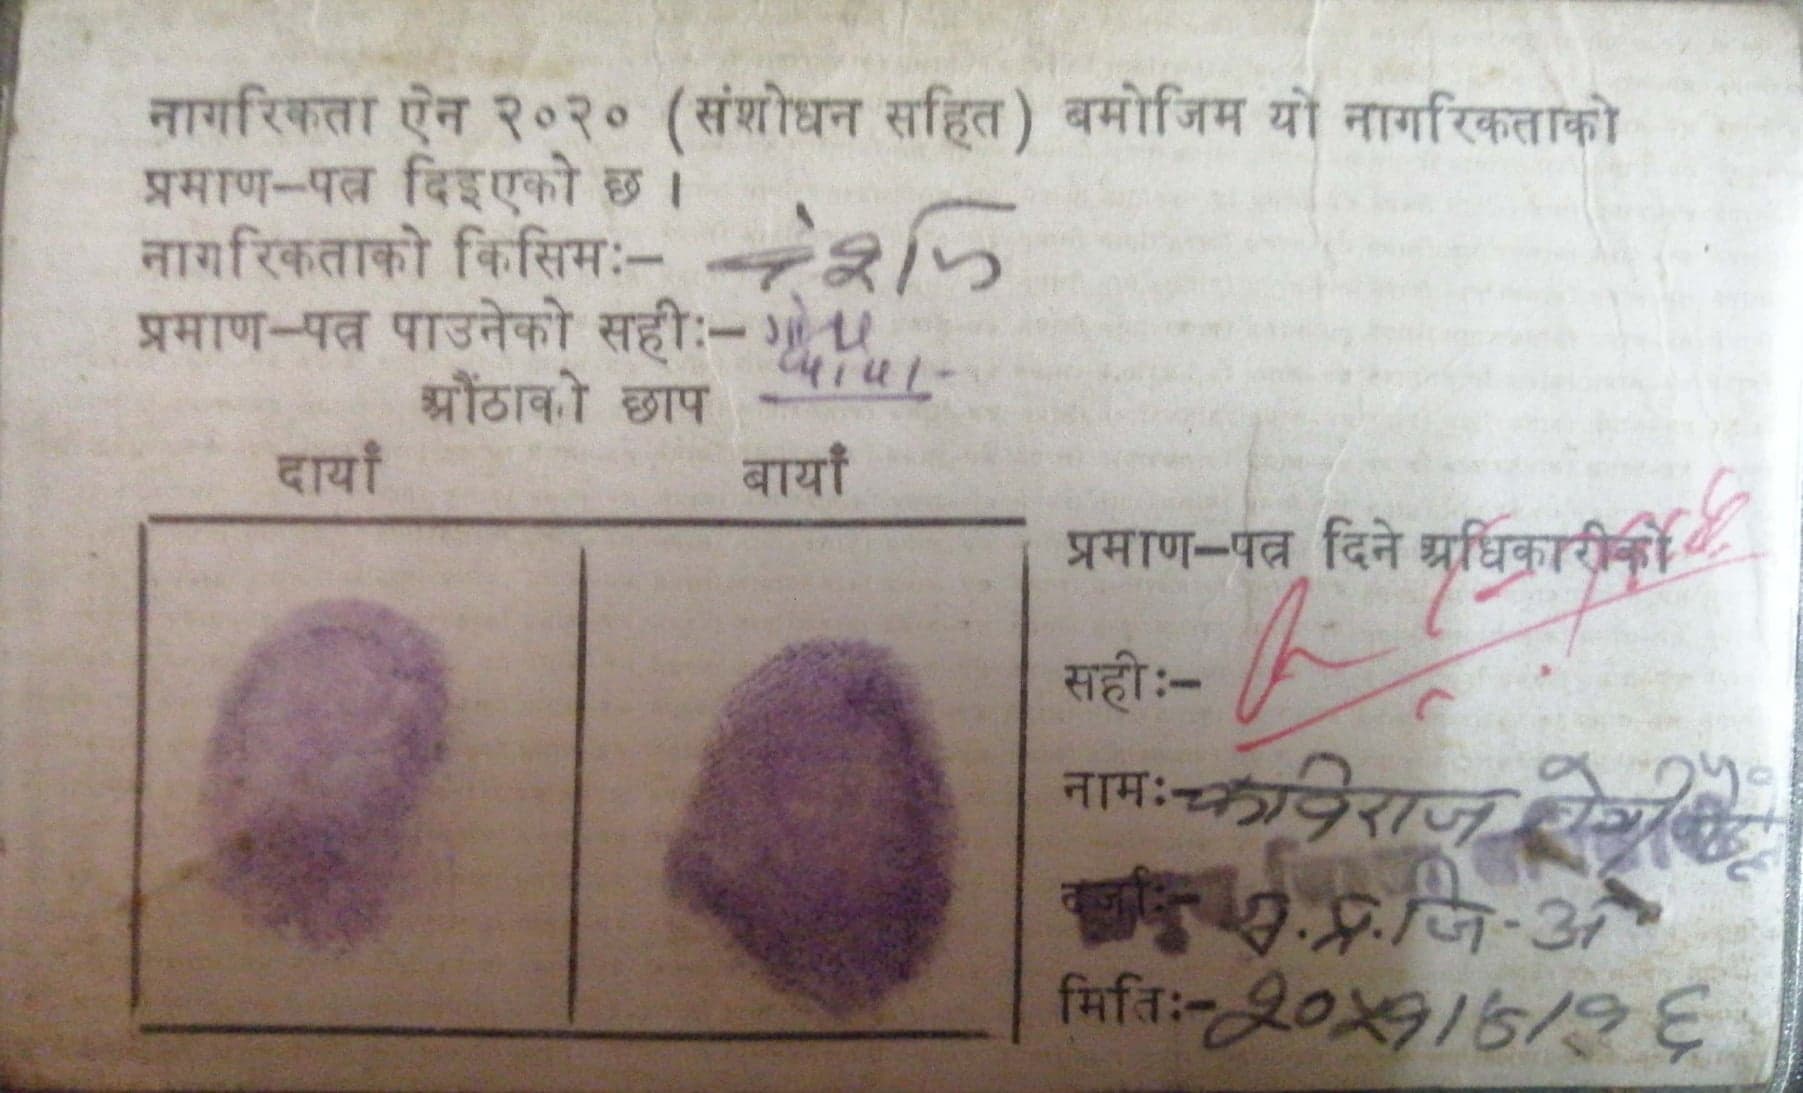 नागरिकता ऐन २०२० (संशोधन सहित) बमोजिम यो नागरिकताको
प्रमाण-पत्र दिइएको छ ।
नागरिकताको किसिम:-
प्रमाण-पत्र पाउनेको सही:-
औंठाको छाप
दायाँ बायाँ
प्रमाण-पत्र दिने अधिकारीको
सही:-
नाम:-
दर्जा:- स.प्र.जि.अ
मिति:-